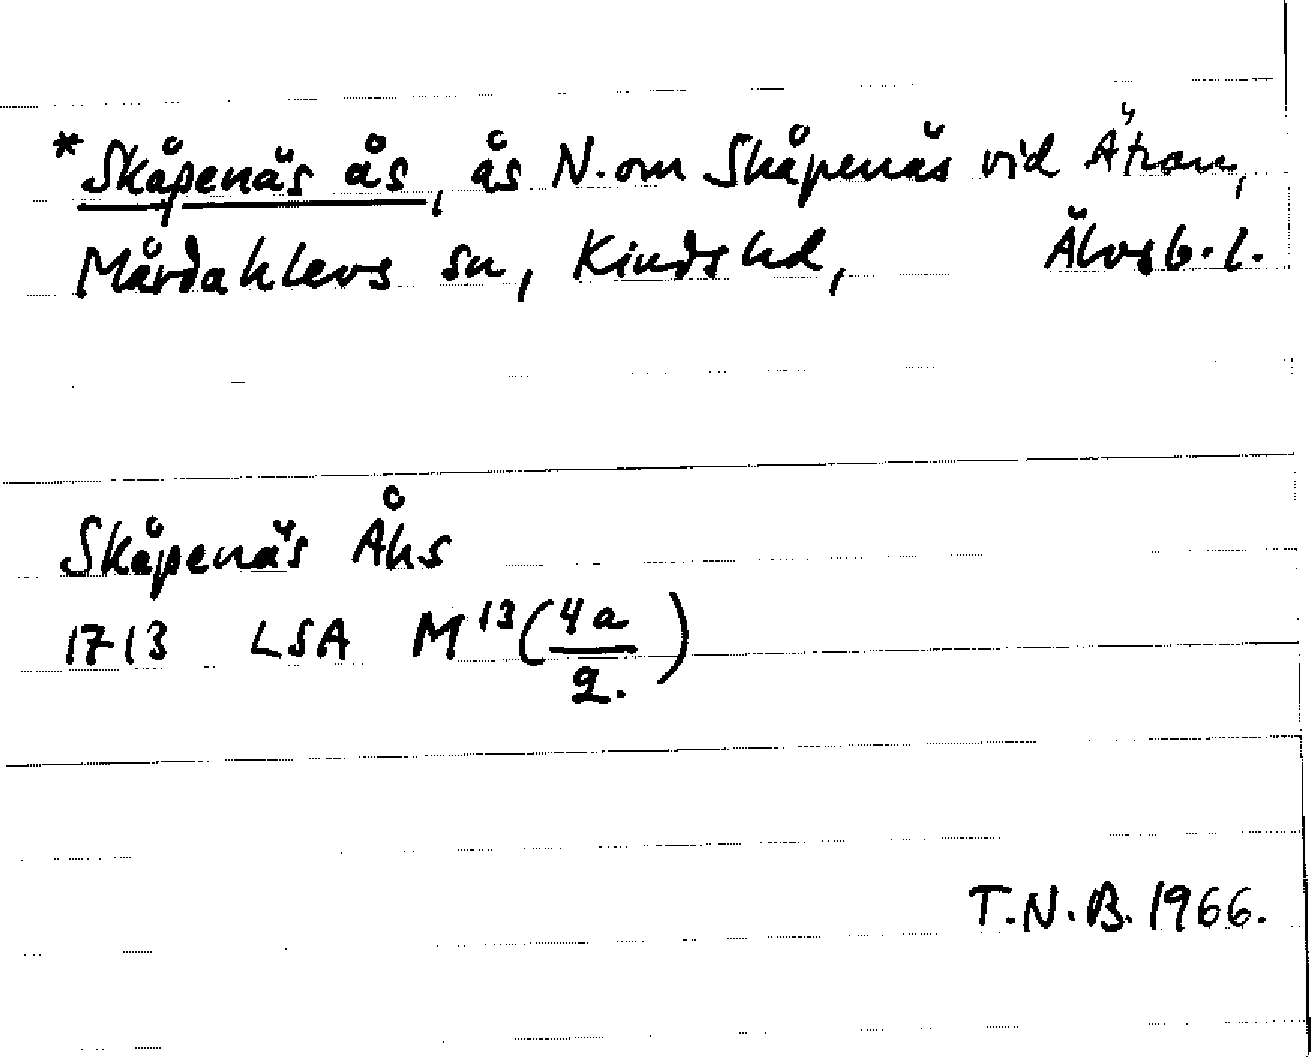 *Skåpenäs ås, ås N. om Skåpenäs vid Ätran,
Mårdaklevs sn, Kinds hd, Älvsb. l.
Skåpenäs Åhs
1713 LSA M 13 (4a/2.)
T.N.B. 1966.